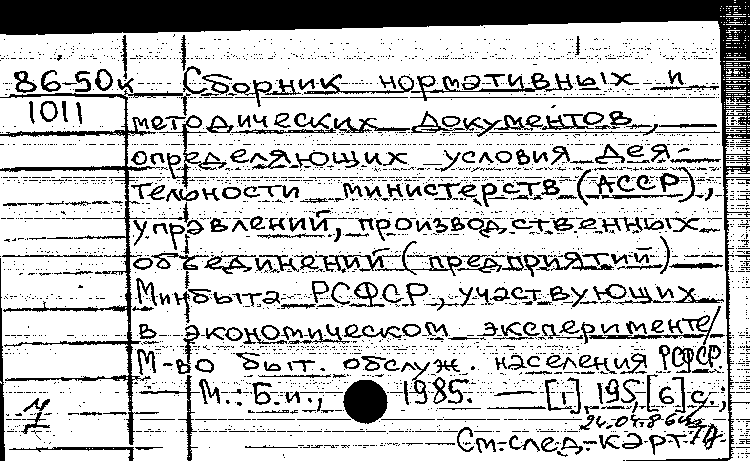 86-50к Сборник нормативных и
1011 методических документов,
определяющих условия дея-
тельности министерств (АССР),
управлений, производственных
объединений (предприятий)
Минбыта РСФСР, участвующих
в экономическом эксперименте/
М-во быт. обслуж. населения РСФСР.
М.: Б.и., 1985. — [1], 195, [6] с.;
24.04.86
См. след. карт.